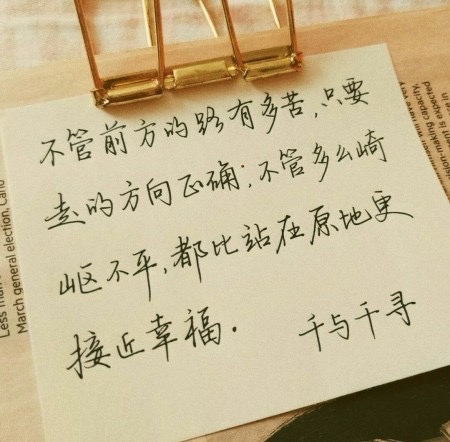 不管前方的路有多苦,只要
走的方向正确;不管多么崎
岖不平,都比站在原地更
接近幸福.
千与千寻
March general election, Cano